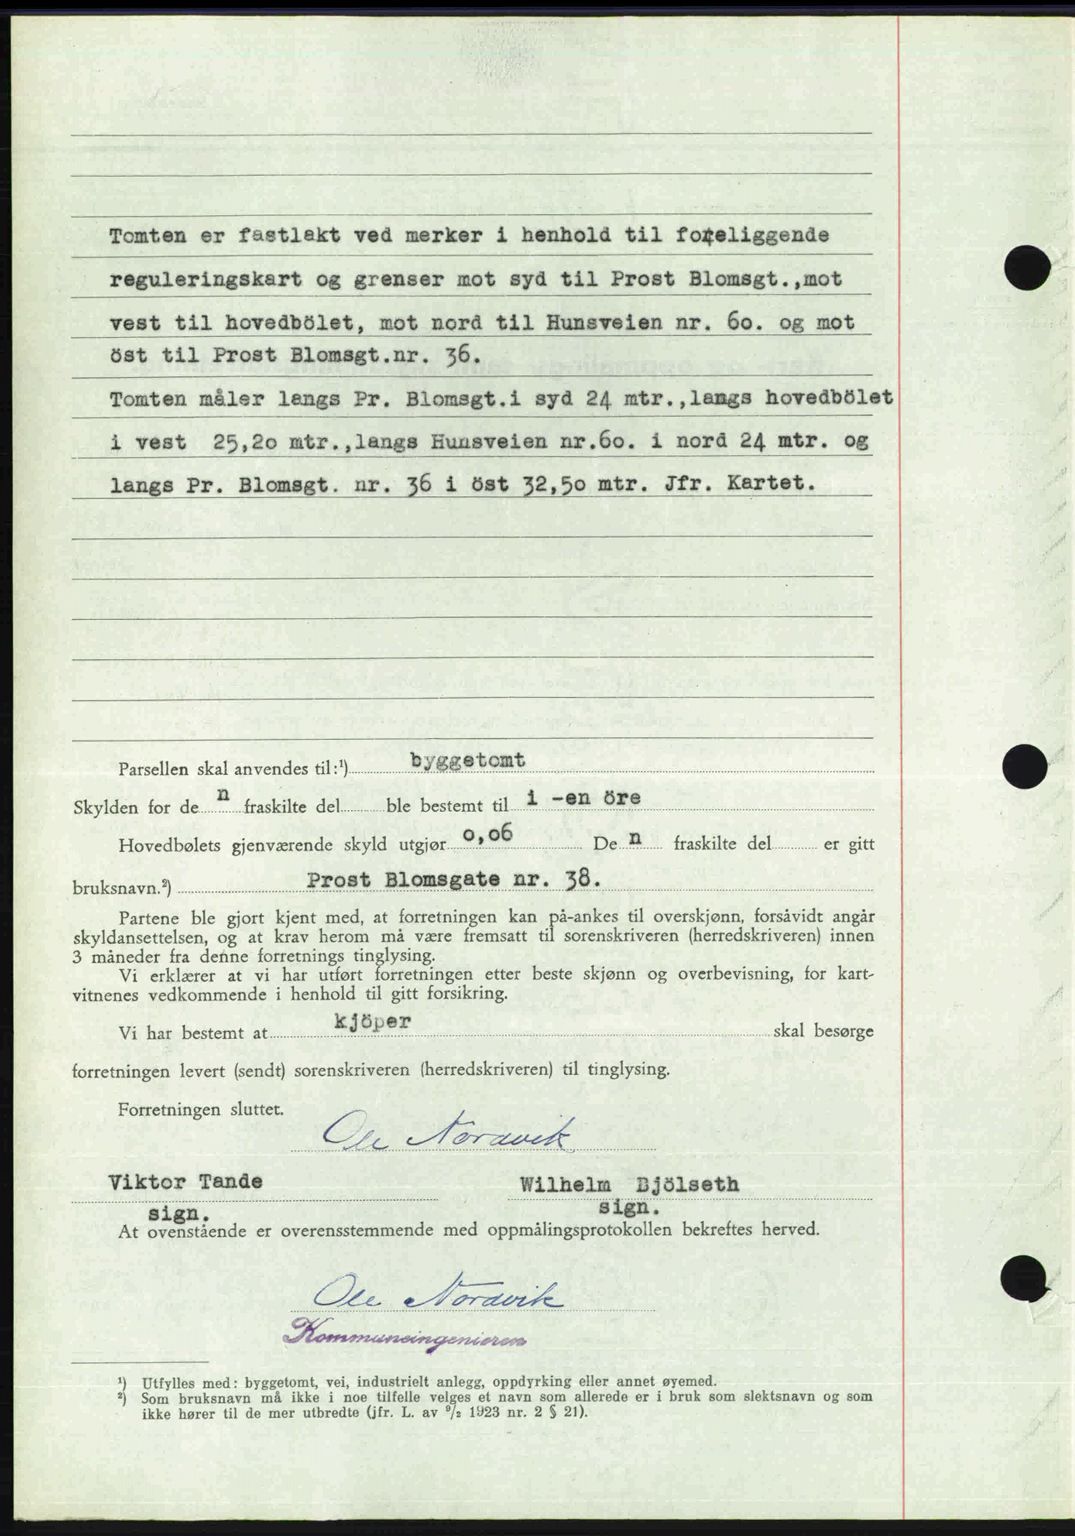 Tomten er fastlakt ved merker i henhold til foreliggende
reguleringskart og grenser mot syd til Prost Blomsgt.,mot
vest til hovedbölet, mot nord til Hunsveien nr. 60. og mot
öst til Prost Blomsgt.nr. 36.
Tomten måler langs Pr. Blomsgt.i syd 24 mtr.,langs hovedbölet
i vest 25,20 mtr.,langs Hunsveien nr.60. i nord 24 mtr. og
langs Pr. Blomsgt. nr. 36 i öst 32,50 mtr. Jfr. Kartet.
Parsellen skal anvendes til:¹) byggetomt
Skylden for de n fraskilte del ble bestemt til 1 -en öre
Hovedbølets gjenværende skyld utgjør 0,06 De n fraskilte del er gitt
bruksnavn.²) Prost Blomsgate nr. 38.
Partene ble gjort kjent med, at forretningen kan på-ankes til overskjønn, forsåvidt angår
skyldansettelsen, og at krav herom må være fremsatt til sorenskriveren (herredskriveren) innen
3 måneder fra denne forretnings tinglysing.
Vi erklærer at vi har utført forretningen etter beste skjønn og overbevisning, for kart-
vitnenes vedkommende i henhold til gitt forsikring.
Vi har bestemt at kjöper skal besørge
forretningen levert (sendt) sorenskriveren (herredskriveren) til tinglysing.
Forretningen sluttet.
Ole Nordvik
Viktor Tande Wilhelm Bjölseth
sign. sign.
At ovenstående er overensstemmende med oppmålingsprotokollen bekreftes herved.
Ole Nordvik
Kommuneingeniøren
¹) Utfylles med: byggetomt, vei, industrielt anlegg, oppdyrking eller annet øyemed.
²) Som bruksnavn må ikke i noe tilfelle velges et navn som allerede er i bruk som slektsnavn og som
ikke hører til de mer utbredte (jfr. L. av ⁹/₂ 1923 nr. 2 § 21).